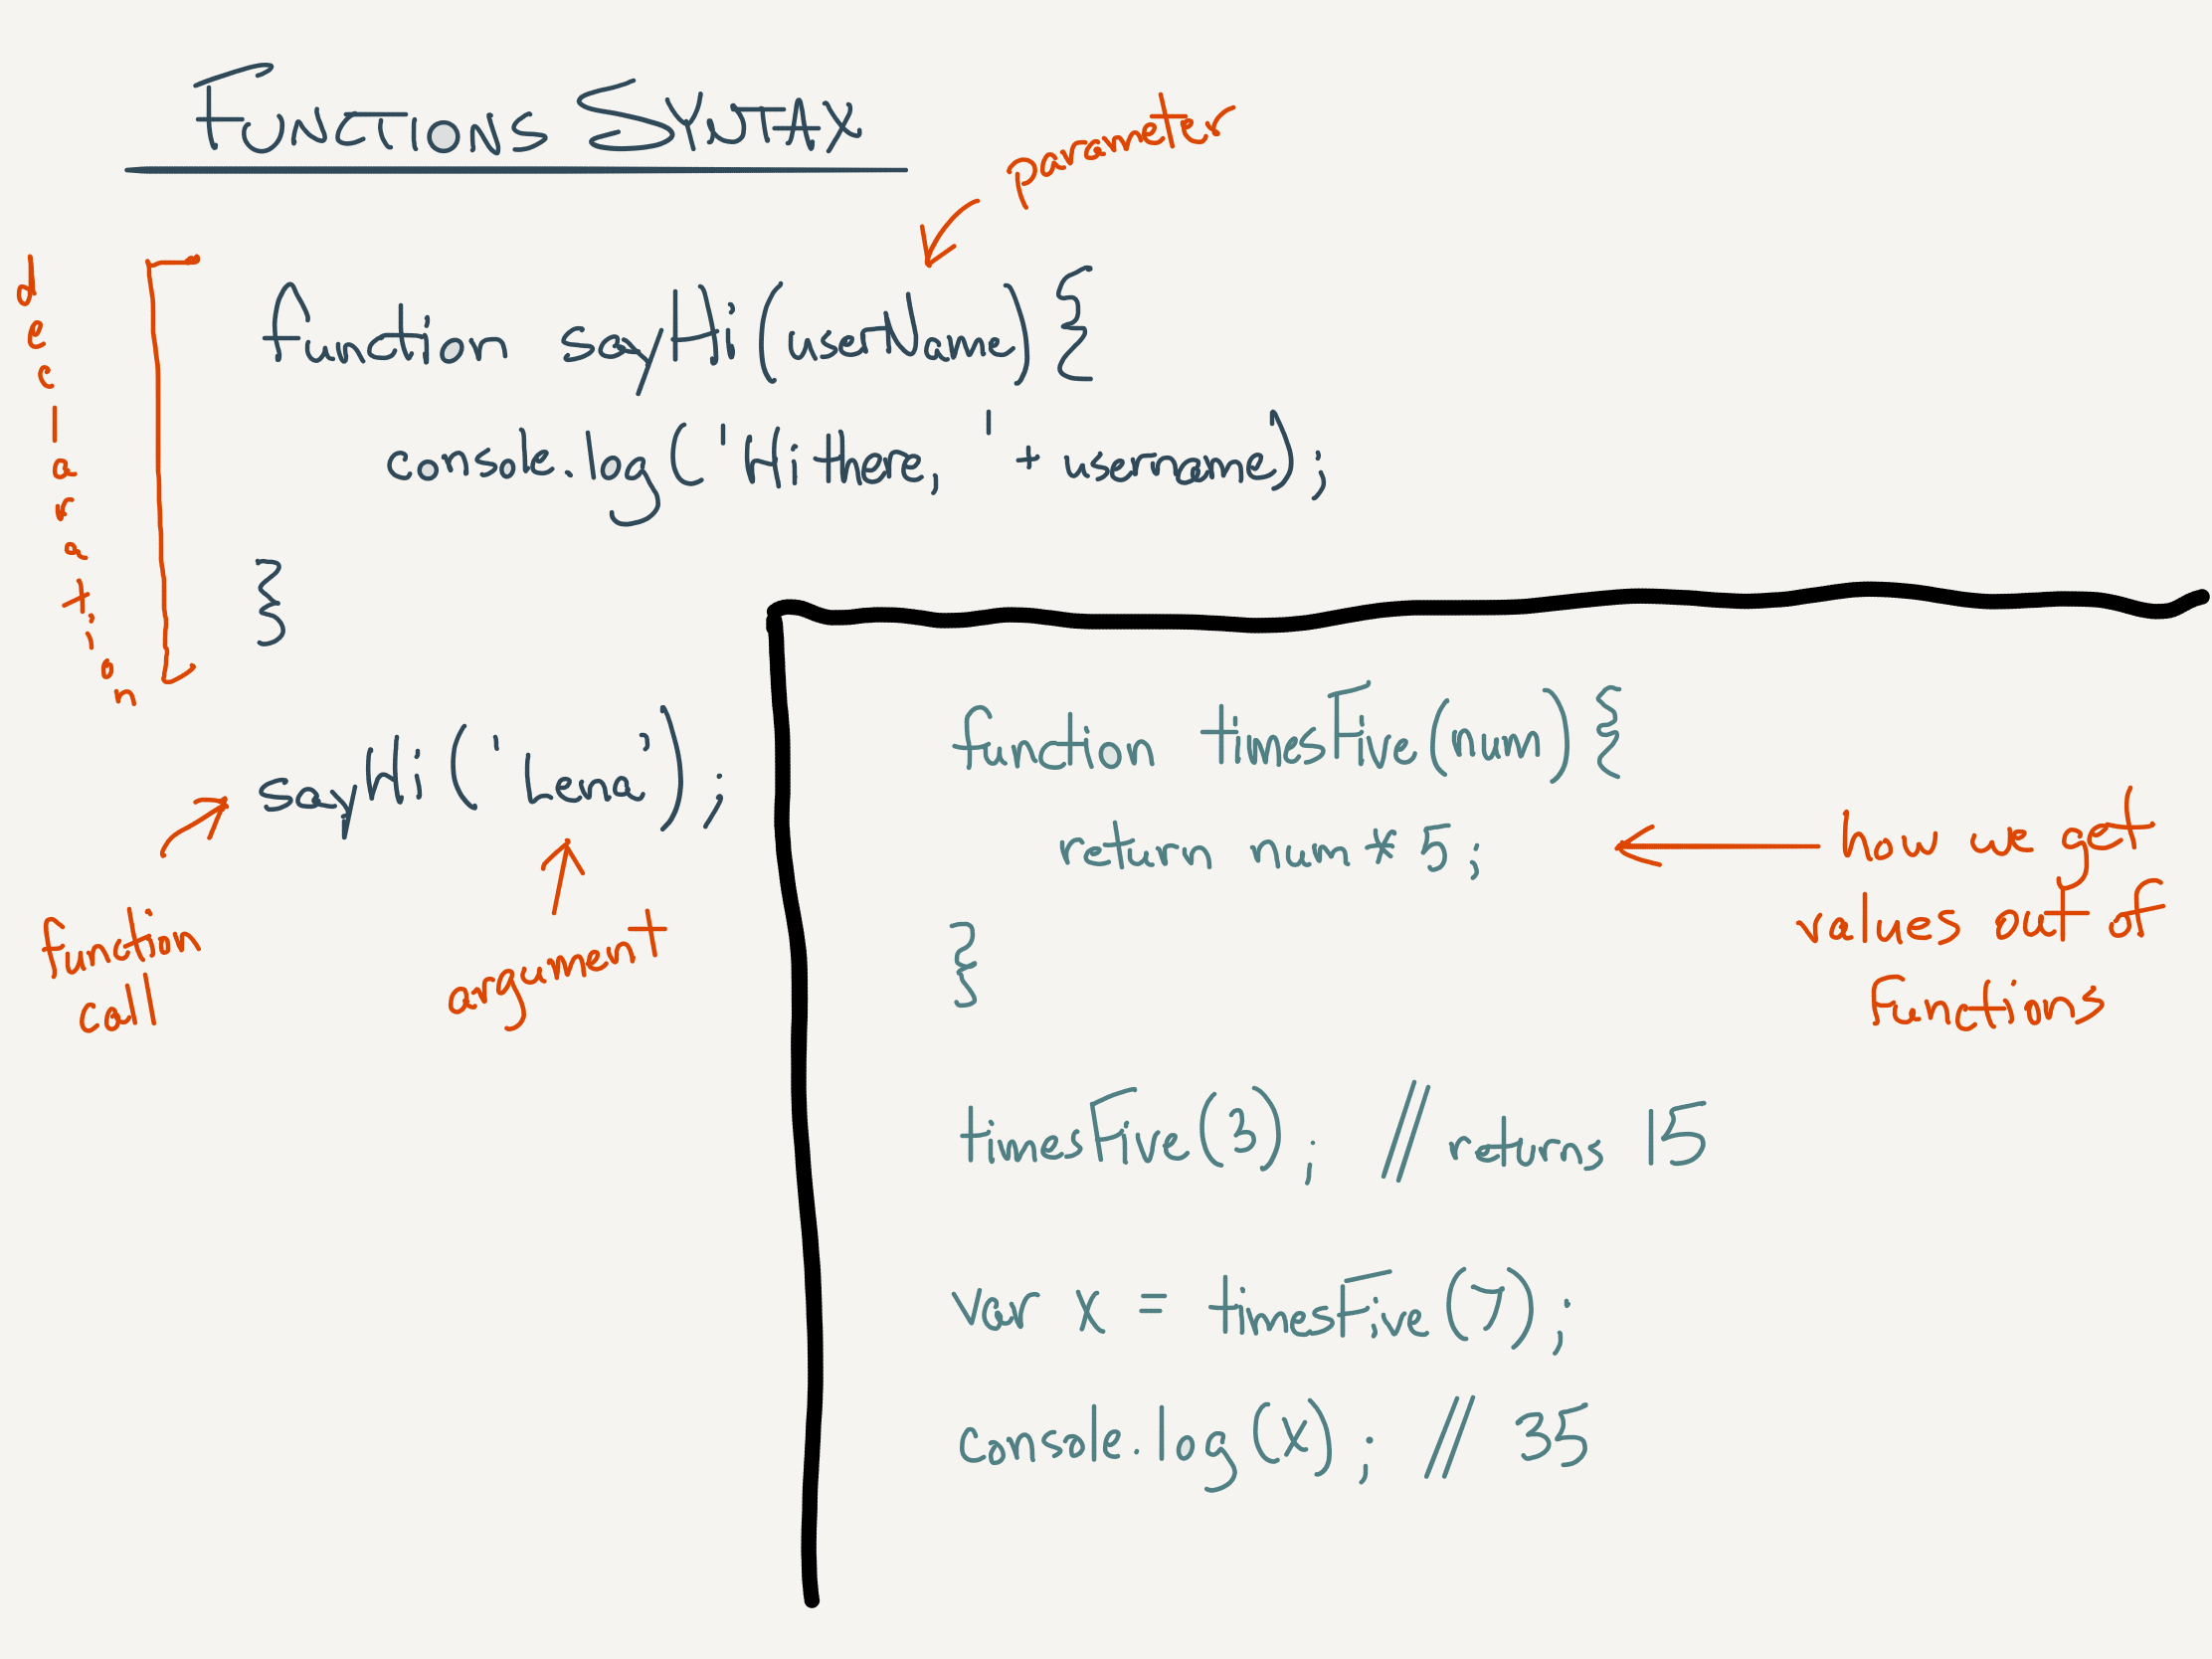 FUNCTIONS SYNTAX
parameter
declaration
function sayHi(userName){
console.log('Hi there, ' + username);
}
sayHi('Lena');
function
call
argument
function timesFive(num){
return num * 5;
}
how we get
values out of
functions
timesFive(3); // returns 15
var x = timesFive(7);
console.log(x); // 35